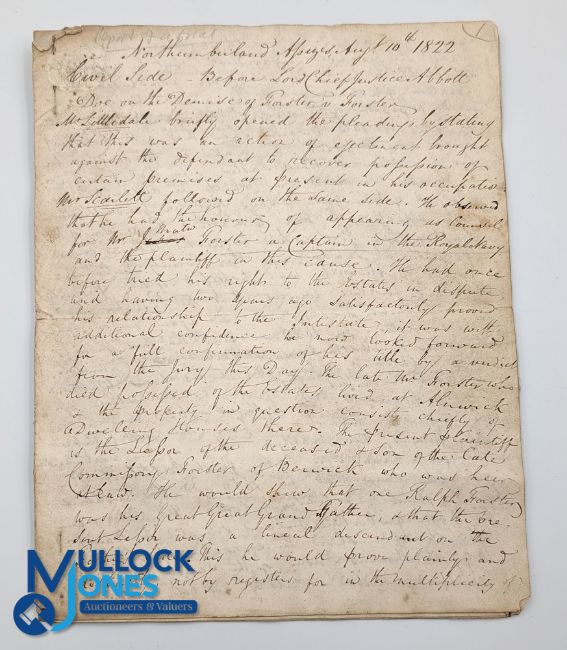 Report of a trial
1
Northumberland Assizes Augt 10th 1822
Civil Side - Before Lord Chief Justice Abbott
Doe on the Demise of Forster v Forster
Mr Littledale briefly opened the pleadings by stating
that this was an action of ejectment brought
against the defendant to recover possession of
certain premises at present in his occupation
Mr Scarlett followed on the same side. He observed
that he had the honour of appearing as Counsel
for Mr Forster a Captain in the Royal Navy
and the plaintiff in this cause. He had once
before tried his right to the Estates in dispute
and having two years ago satisfactorily proved
his relationship to the Intestate, it was with
additional confidence he now looked forward
for a full confirmation of his title by a verdict
from the Jury this Day. The late Mr Forster who
died possessed of the Estates lived at Alnwick
& the property in question consists chiefly of
Dwelling Houses there. The present plaintiff
is the Lessor of the deceased & Son of the late
Commissy Forster of Berwick who was heir
at Law. He would shew that one Ralph Forster
was his Great Great Grand father, & that the pre-
sent Lessor was a lineal descendant on the
this he would prove plainly and
not by registers for in the multiplicity of
MULLOCK
JONES
Auctioneers & Valuers